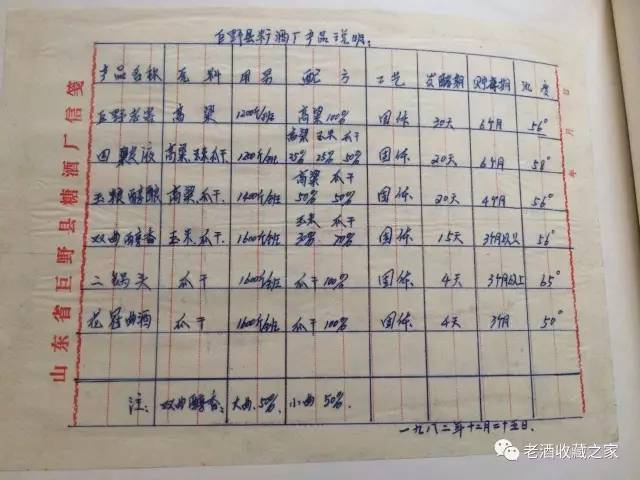 巨野县酒厂产品说明:
产品名称 原料 用量 配方 工艺 发酵期 贮存期 酒度
高粱 1200斤/班 高粱100% 固体 30天 6个月 56°
高粱 玉米 瓜干
四粮液 高粱、玉米瓜干 1200斤/班 25% 25% 50% 固体 20天 6个月 58°
高粱 瓜干
高粱瓜干 1400斤/班 50% 50% 固体 20天 4个月 56°
玉米 瓜干
双曲醇香 玉米、瓜干 1600斤/班 30% 70% 固体 15天 3个月以上 56°
二锅头 瓜干 1600斤/班 瓜干100% 固体 4天 3个月以上 65°
花冠曲酒 瓜干 1600斤/班 瓜干100% 固体 4天 3个月 50°
注: 双曲醇香: 大曲50%、小曲50%
一九八二年十二月二十五日.
山东省巨野县糖酒厂信笺
年 月 日
老酒收藏之家